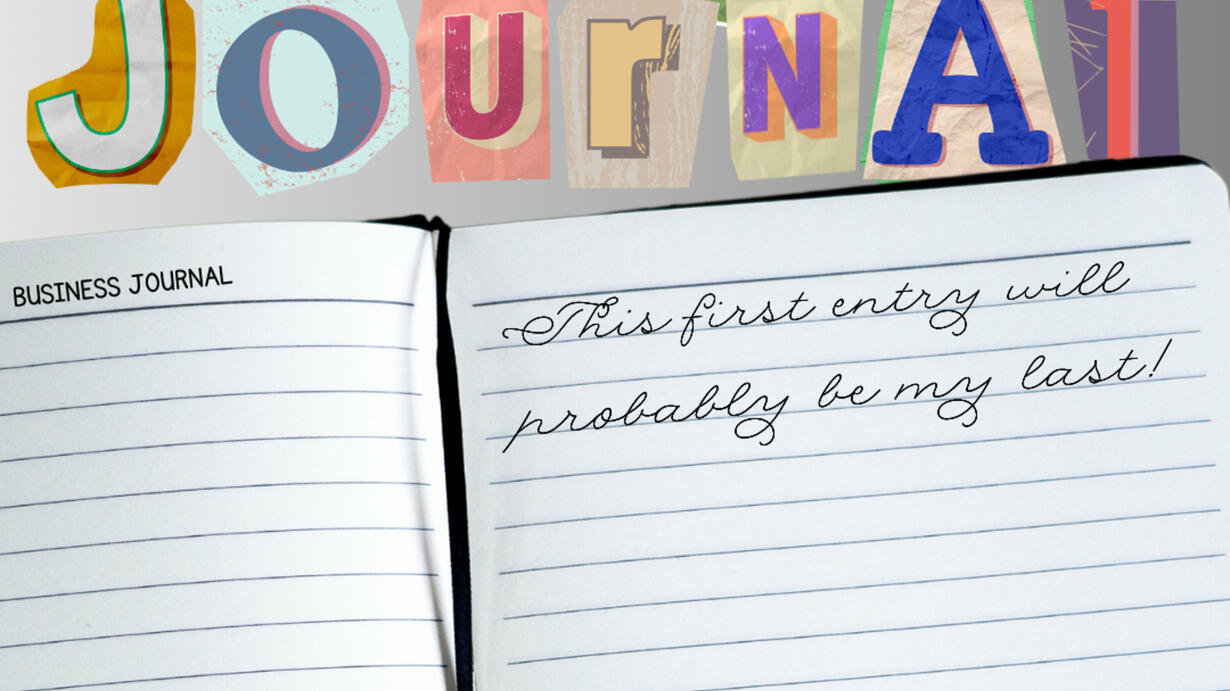 JOUrNAl
BUSINESS JOURNAL
This first entry will
probably be my last!